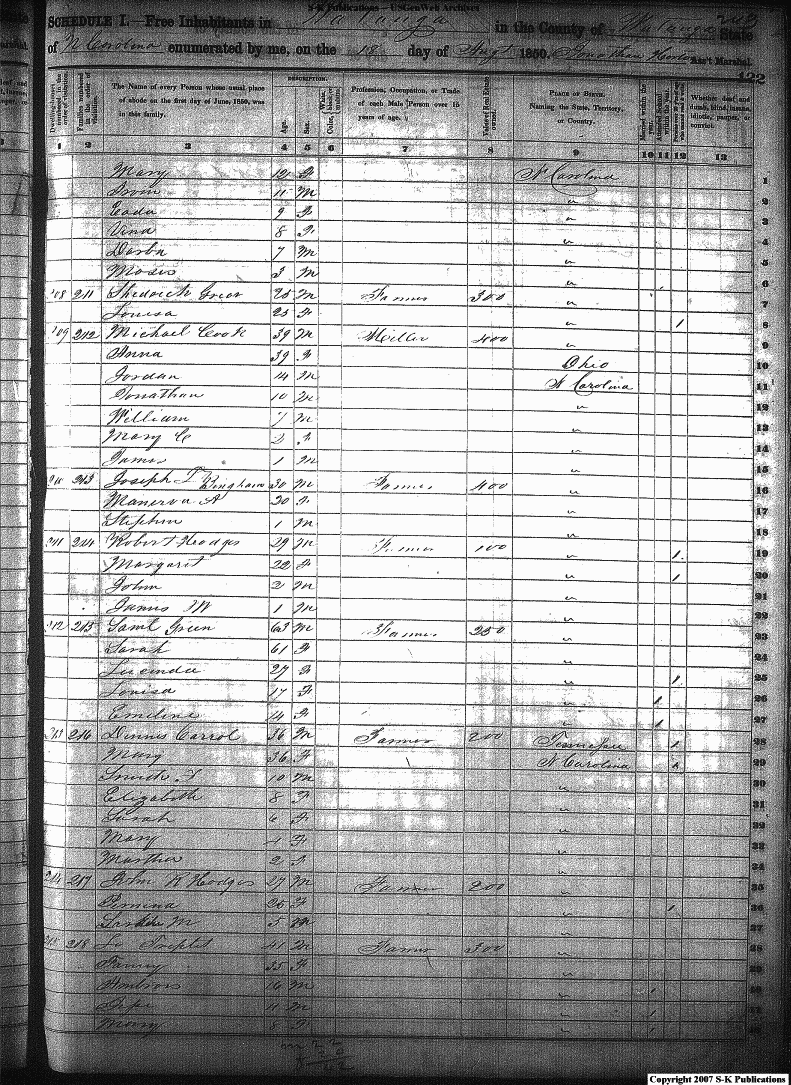 S-K Publications - USGenWeb Archives
SCHEDULE I.—Free Inhabitants in Watauga in the County of Watauga State
of N Carolina enumerated by me, on the 18 day of Augt 1850. Jonathan Horton Ass't Marshal.
122
Dwelling-houses numbered in the order of visitation.
Families numbered in the order of visitation.
The Name of every Person whose usual place of abode on the first day of June, 1850, was in this family.
DESCRIPTION.
Age.
Sex.
White, black, or mulatto.
Color,
Profession, Occupation, or Trade of each Male Person over 15 years of age.
Value of Real Estate owned.
PLACE OF BIRTH. Naming the State, Territory, or Country.
Married within the year.
Whether deaf and dumb, blind, insane, idiotic, pauper, or convict.
1 2 3 4 5 6 7 8 9 10 11 12 13
Mary 12 F N Carolina 1
11 M " 2
Eada 9 F " 3
Vina 8 F " 4
7 M " 5
Moses 3 M " 6
211 Green 25 M Farmer 300 " 7
Louisa 25 F " 1 8
209 212 Michael Cook 39 M Miller 400 " 9
Anna 39 F Ohio 10
Jordan 14 M N Carolina 11
Jonathan 10 M " 12
William 7 M " 13
Mary C 2 F " 14
James 1 M " 15
213 Joseph T Bingham 30 M Farmer 400 " 16
Manerva A 20 F " 17
Stephen 1 M " 18
211 214 Robert Hodges 29 M Farmer 100 " 1 19
Margaret 22 F " 1 20
John 2 M " 21
James M 1 M " 22
212 215 Saml Green 63 M Farmer 250 " 23
Sarah 61 F " 24
Lucinda 27 F " 1 25
Louisa 17 F " 1 26
Emeline 14 F " 1 27
213 216 Dennis Carrol 36 M Farmer 200 Tennessee 1 28
Mary 36 F N Carolina 1 29
Smith 10 M " 30
Elizabeth 8 F " 31
Sarah 6 F " 32
Mary 4 F " 33
Martha 2 F " 34
214 217 John R Hodges 27 M Farmer 200 " 35
26 F " 1 36
M 5 M " 37
215 218 Triplet 41 M Farmer 300 " 38
Fanny 35 F " 39
16 M " 1 40
11 M " 1
Mary 8 F " 1
Copyright 2007 S-K Publications